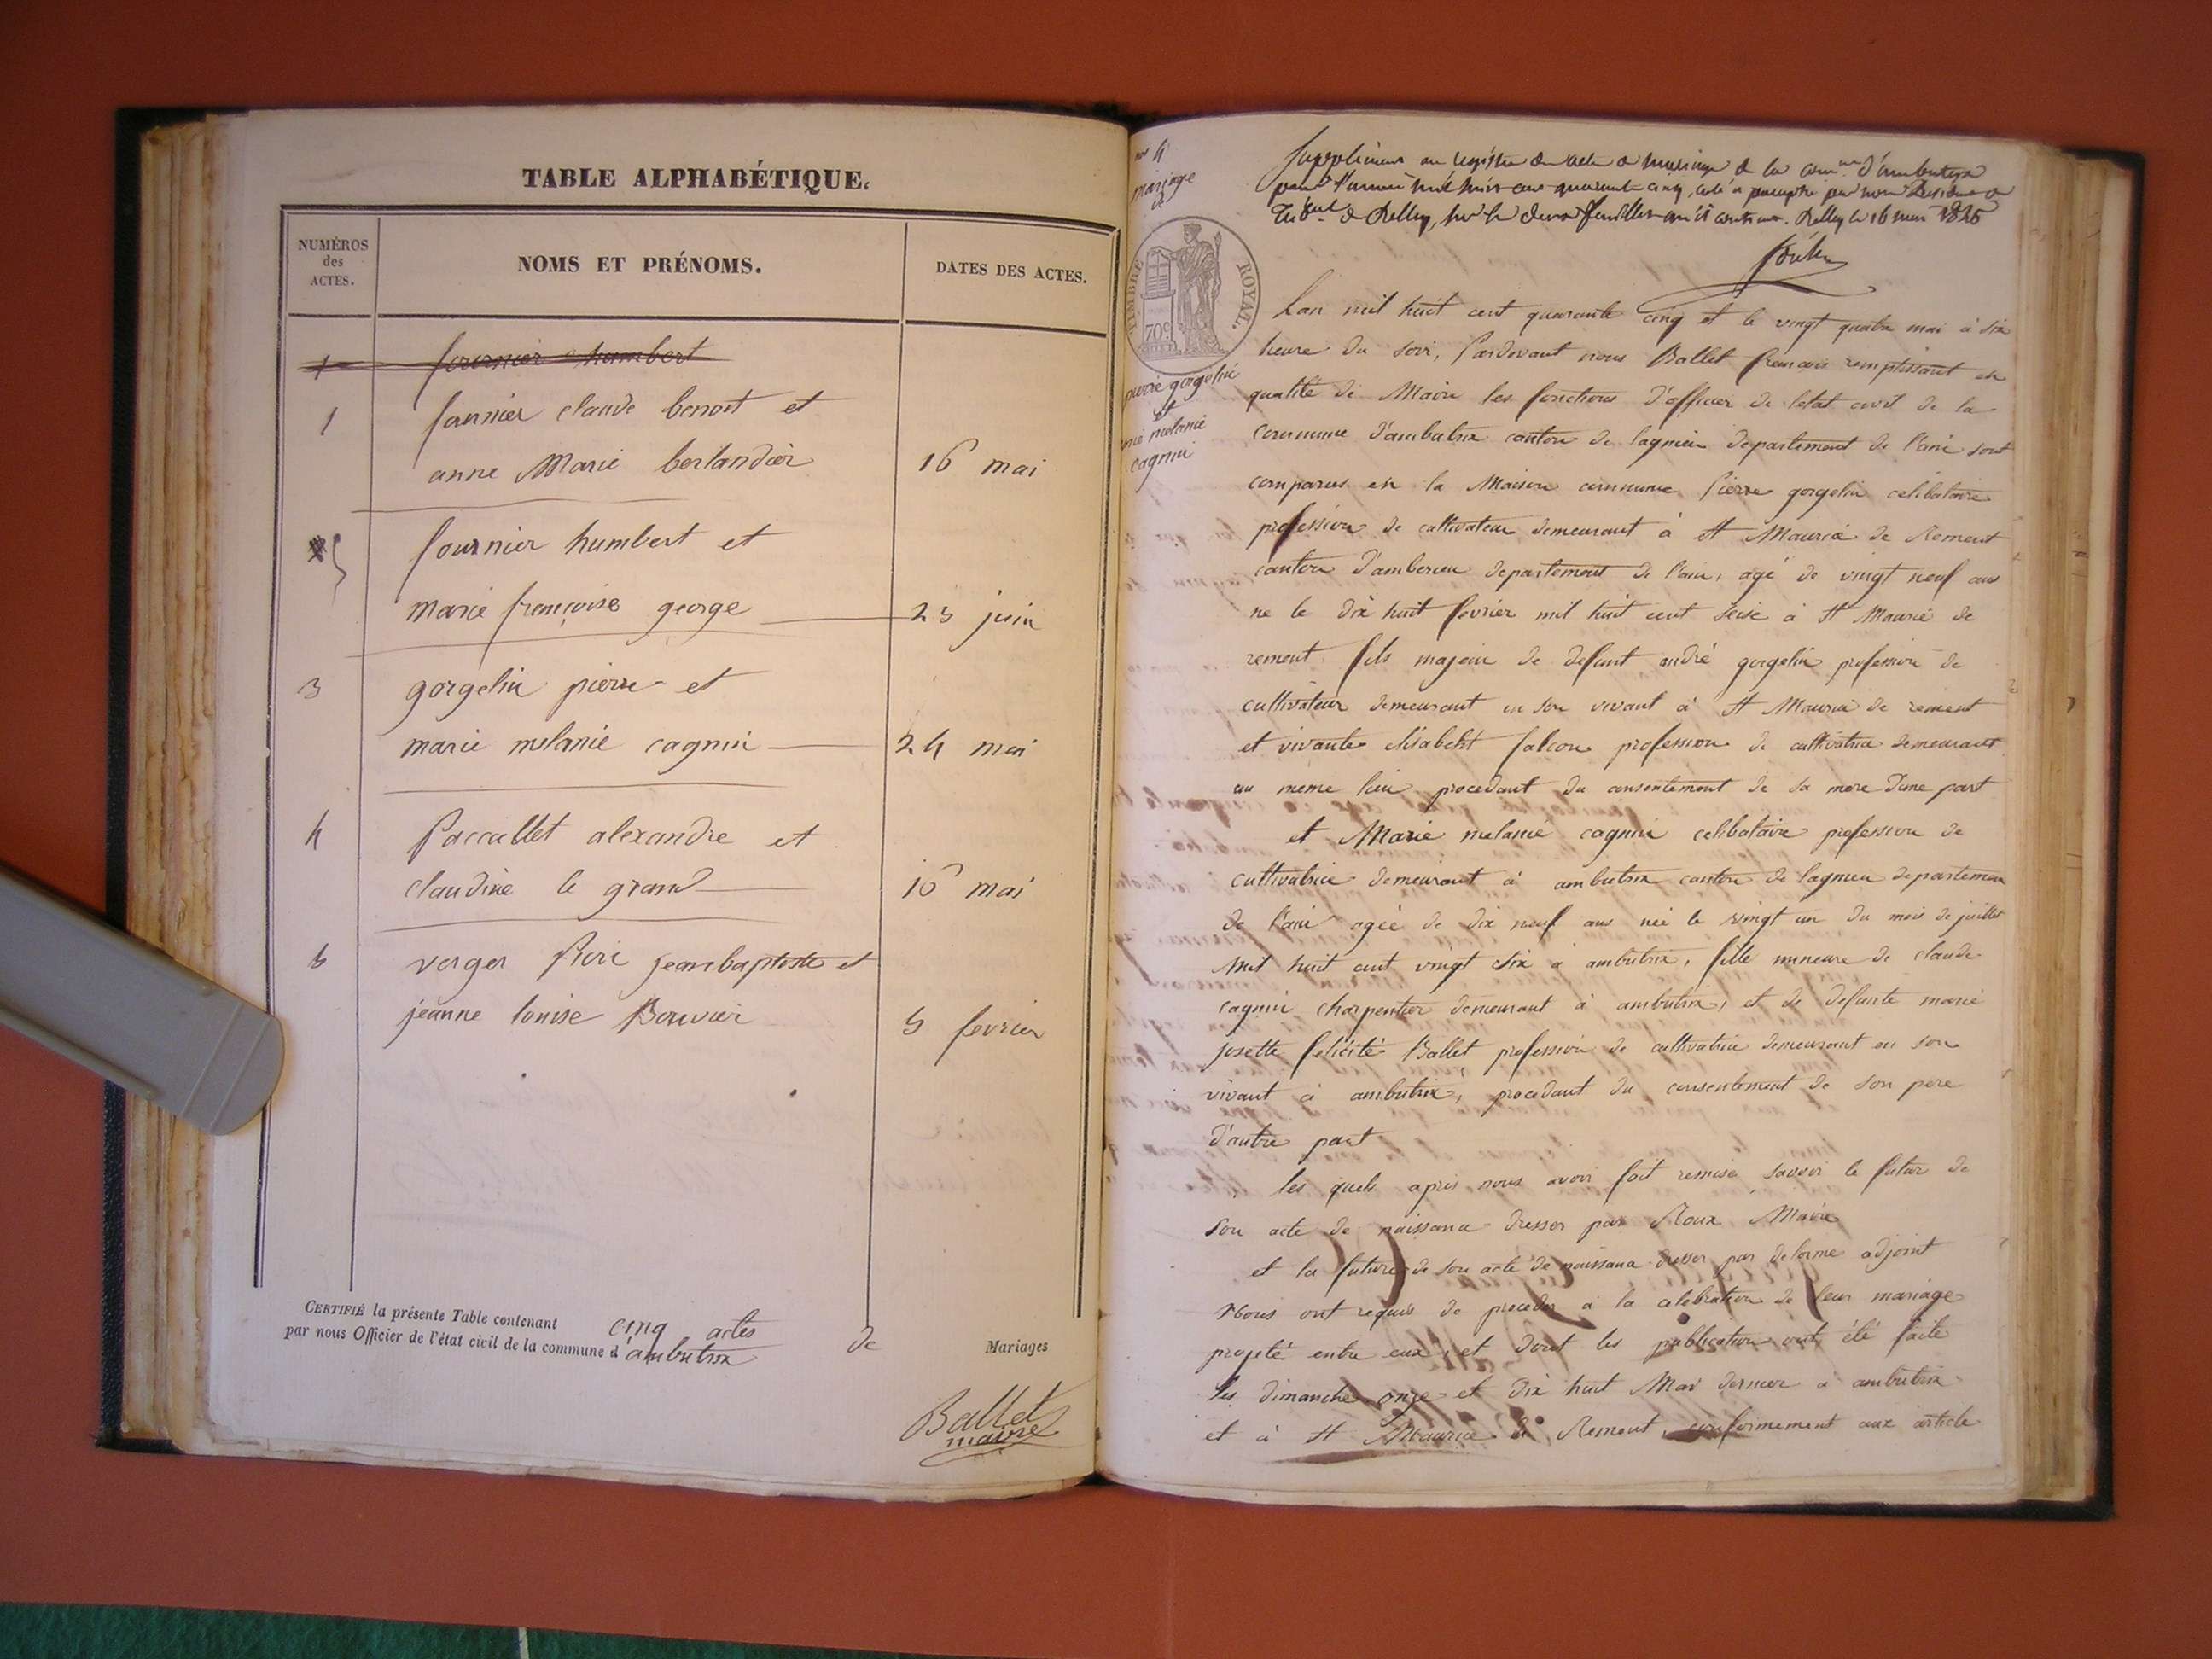 TABLE ALPHABÉTIQUE.
NUMÉROS des ACTES.
NOMS ET PRÉNOMS.
DATES DES ACTES.
1 fournier humbert
1 fournier claude benoit et
anne Marie berlandier 16 mai
fournier humbert et
marie françoise george 23 juin
3 gorgelin pierre et
marie melanie cagnin 24 mai
4 Paccallet alexandre et
claudine le grand 16 mai
verger Pierre jean baptiste et
jeanne louise Bouvier 5 fevrier
CERTIFIÉ la présente Table contenant cinq actes de Mariages
par nous Officier de l'état civil de la commune d'ambutrix
Ballet
maire
nos 4
mariage
de
TIMBRE ROYAL.
70c.
pierre gorgelin
et
melanie
cagnin
Supplément au registre des actes de mariage de la comne d'ambutrix
pour l'année mil huit cent quarante cinq, coté et paraphé par nous Président du
Tribunal de Belley, sur les deux feuilles qu'il contient. Belley le 16 mai 1845
Lan mil huit cent quarante cinq et le vingt quatre mai à six
heure du soir, Pardevant nous Ballet françois remplissant en
qualité de Maire les fonctions d'officier de letat civil de la
commune d'ambutrix canton de lagnieu departement de l'ain sont
comparus en la Maison commune Pierre gorgelin celibataire
profession de cultivateur demeurant à St Maurice de Rement
canton d'amberieu departement de l'ain, agé de vingt neuf ans
ne le dix huit fevrier mil huit cent seise à St Maurice de
rement fils majeur de defunt andré gorgelin profession de
cultivateur demeurant en son vivant à St Maurice de rement
et vivante elisabeht falcon profession de cultivatrice demeurant
au meme lieu procedant du consentement de sa mere d'une part
et Marie melanie cagnin celibataire profession de
cultivatrice demeurant à ambutrix canton de lagnieu departement
de l'ain agée de dix neuf ans née le vingt un du mois de juillet
mil huit cent vingt six à ambutrix, fille mineure de claude
cagnin charpentier demeurant à ambutrix, et de defunte marie
josette felicité Ballet profession de cultivatrice demeurant en son
vivant à ambutrix, procedant du consentement de son pere
d'autre part
les quels apres nous avoir fait remise savoir le futur de
son acte de naissance dresser par Roux Maire
et la future de son acte de naissance dresser par delorme adjoint
Nous ont requis de proceder a la celebration de leur mariage
projeté entre eux, et dont les publications ont été faite
les dimanche onze et dix huit Mai dernier a ambutrix
et à St Maurice de Remont, conformement aux article